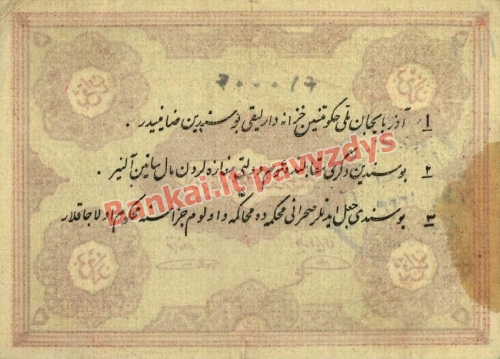 ۱ آذربایجان ملی حکومتینین خزانه دارلیقی بوسندین ضامنیدیر .
۲ بوسندین دولتی مغازه لردن مال ساتین آلینیر .
۳ بوسندی جعل ایدنلر صحرائی محکمه ده محاکمه و اولوم جزاسنه محکوم اولاجاقلار
Bankai.lt pavyzdys